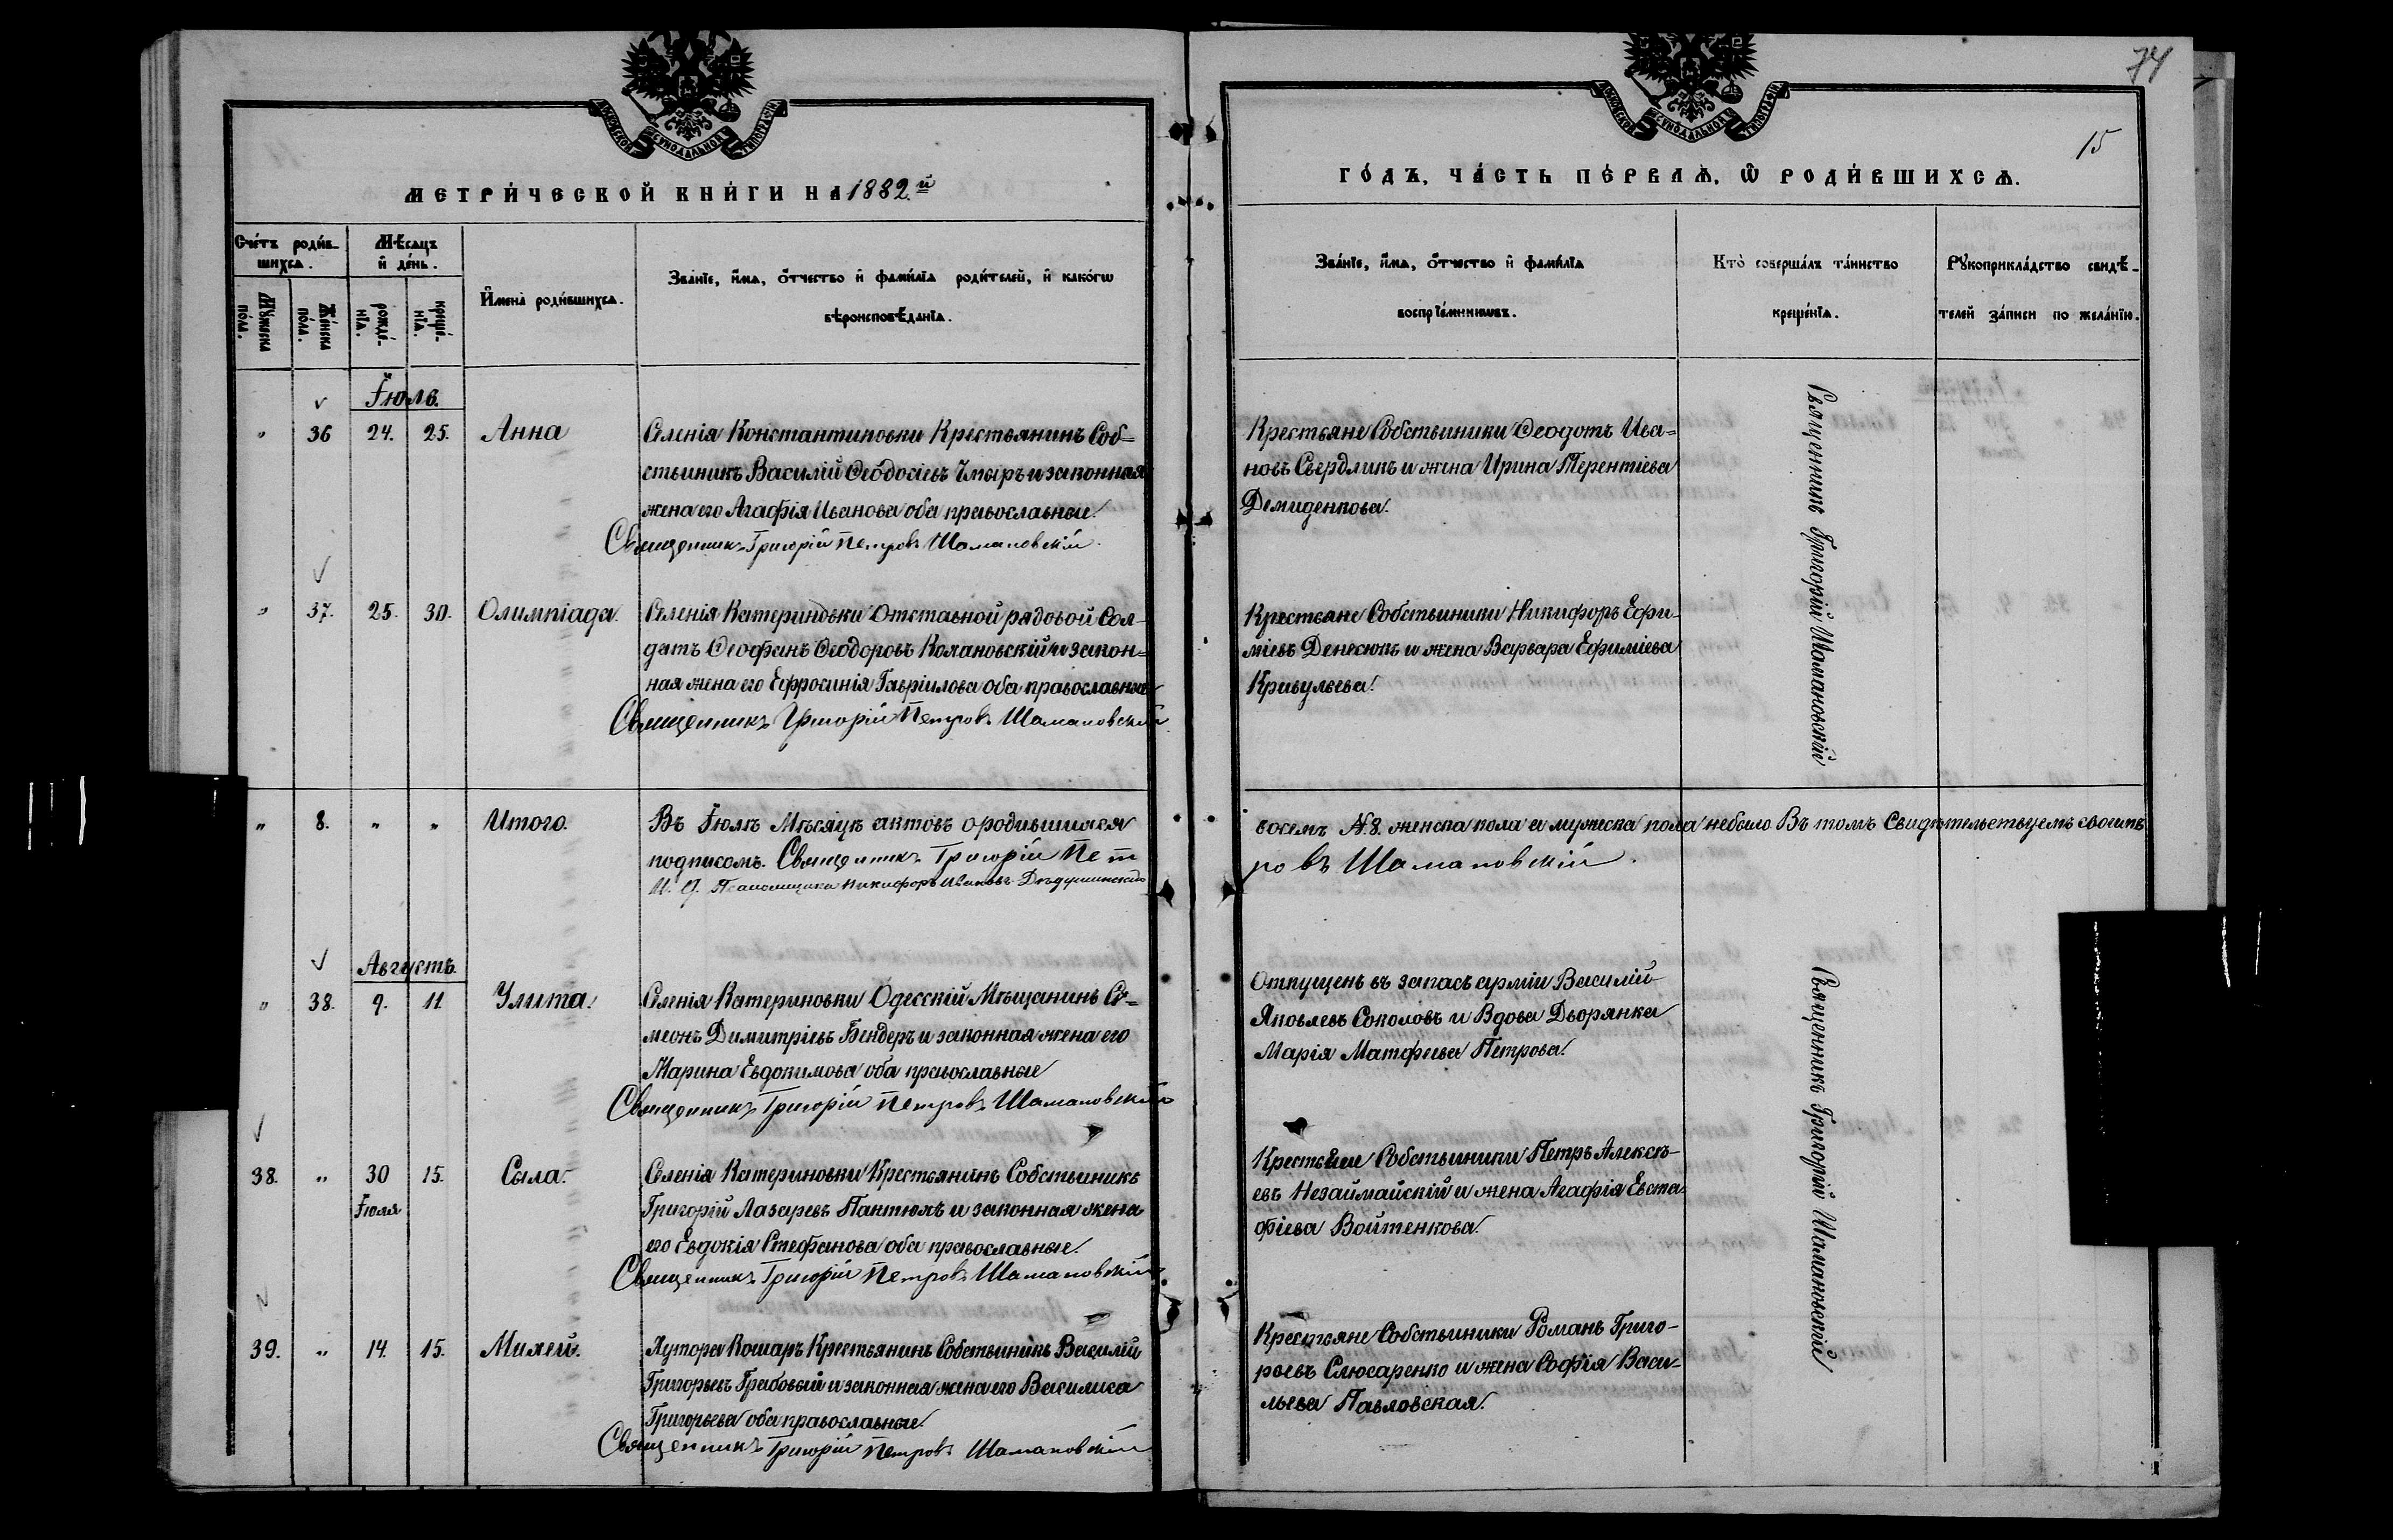 74
15
МОСКОВСКОЙ СѴНОДАЛЬНОЙ ТИПОГРАФІИ
МОСКОВСКОЙ СѴНОДАЛЬНОЙ ТИПОГРАФІИ
МЕТРИ́ЧЕСКОЙ КНИ́ГИ НА 1882.й
ГО́ДЪ, ЧА́СТЬ ПЕ́РВАѦ, Ѿ РОДИ́ВШИХСѦ.
Сче́тъ роди́в-
шихсѧ.
Мѣ́сѧцъ
и҆ де́нь.
Мꙋ́жеска по́ла.
Же́нска по́ла.
рожде́-
нїѧ.
креще́-
нїѧ.
И҆мена̀ роди́вшихсѧ.
Зва́нїе, и҆́мѧ, ѻ҆́тчество и҆ фами́лїѧ роди́телей, и҆ како́гѡ
вѣроисповѣ́данїѧ.
Зва́нїе, и҆́мѧ, ѻ҆́тчество и҆ фами́лїѧ
воспрїе́мниковъ.
Кто̀ соверша́лъ та́инство
креще́нїѧ.
Рꙋкоприкла́дство свидѣ́-
телей за́писи по жела́нїю.
Іюль.
" 36 24. 25. Анна
Селенія Константиновки Крестьянинъ Соб=
ственникъ Василій Ѳеодосіевъ Чмыръ и законная
жена его Агафія Иванова оба православные.
Священникъ Григорій Петровъ Шамановскій.
Крестьяне Собственники Ѳеодотъ Ива=
новъ Свердликъ и жена Ирина Терентіева
Демиденкова.
Священникъ Григорій Шамановскій
" 37. 25. 30. Олимпіада.
Селенія Катериновки Отставной рядовой Сол-
датъ Ѳеофанъ Ѳеодоровъ Колановскій и закон=
ная жена его Ефросинія Гавріилова оба православные
Священникъ Григорій Петровъ Шамановскій
Крестьяне Собственники Никифоръ Ефи-
міевъ Денесюкъ и жена Варвара Ефиміева
Кривульева.
" 8. " " Итого.
Въ Іюлѣ Мѣсяцѣ актовъ о родившихся
восемъ №8. женска пола а мужеска пола небыло Въ томъ Свидѣтельствуемъ своимъ
подписомъ. Священникъ Григорій Пет
ровъ Шамановскій.
И. д. Псаломщика Никифоръ Ивановъ
Августъ.
" 38. 9. 11. Улита.
Селенія Катериновки Одесскій Мѣщанинъ Си=
меонъ Димитріевъ Бендеръ и законная жена его
Марина Евдокимова оба православные
Священникъ Григорій Петровъ Шамановскій
Отпущенъ въ запасъ арміи Василій
Яковлевъ Соколовъ и Вдова Дворянка
Марія Матфеева Петрова.
Священникъ Григорій Шамановскій
38. " 30 15. Сыла.
Іюля
Селенія Катериновки Крестьянинъ Собственникъ
Григорій Лазаревъ Пантюхъ и законная жена
его Евдокія Стефанова оба православные.
Священникъ Григорій Петровъ Шамановскій
Крестьяне Собственники Петръ Алексѣ-
евъ Незаймайскій и жена Агафія Евста-
фіева Войтенкова.
39. " 14. 15. Михей.
Хутора Кошаръ Крестьянинъ Собственникъ Василій
Григорьевъ Грабовый и законная жена его Василиса
Григорьева оба православные.
Священникъ Григорій Петровъ Шамановскій
Крестьяне Собственники Романъ Григо-
рьевъ Слюсаренко и жена Софія Васи-
льева Павловская.